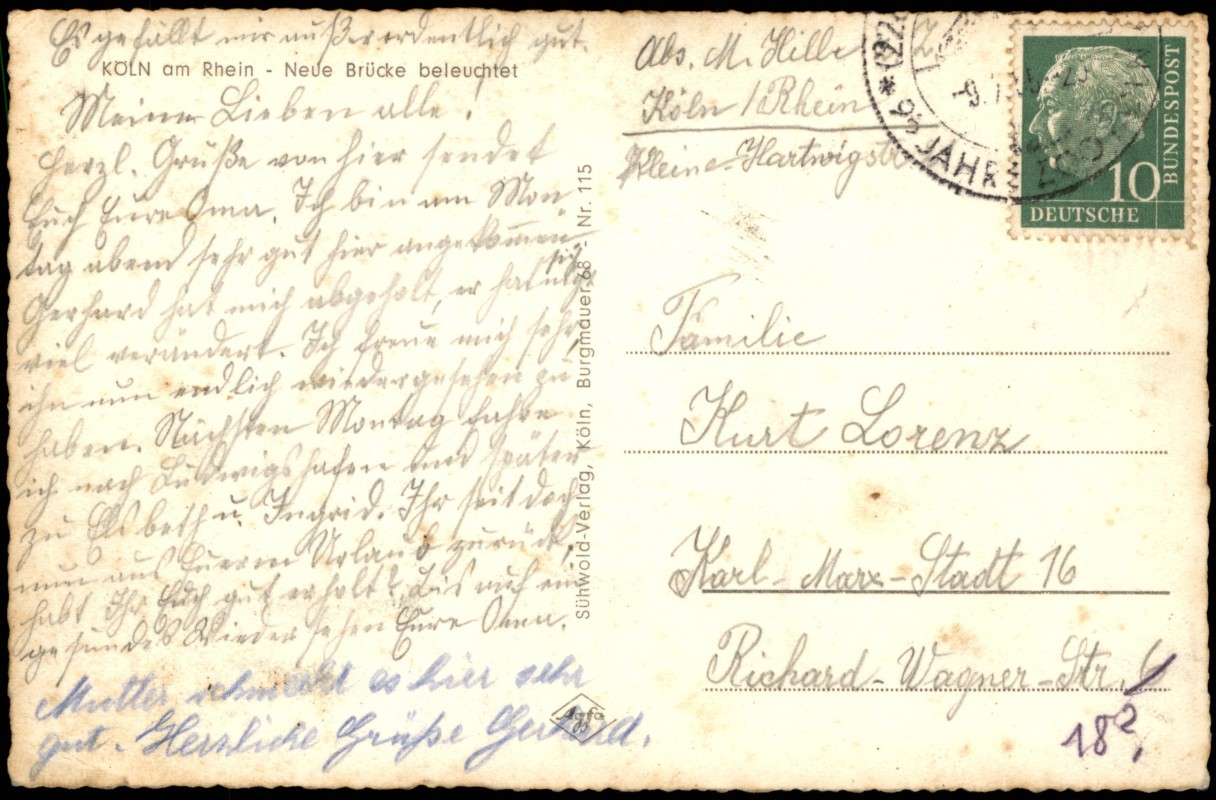 Es gefällt mir außerordentlich gut.
KÖLN am Rhein - Neue Brücke beleuchtet
Meine Lieben alle!
Herzl. Grüße von hier sendet
Euch Eure Oma. Ich bin am Mon-
tag abend sehr gut hier angekommen
Gerhard hat mich abgeholt, er hat sich
viel verändert. Ich freue mich sehr,
ihn nun endlich wiedergesehen zu
haben. Nächsten Montag fahre
ich nach Ludwigshafen und später
zu Elsbeth u. Ingrid. Ihr seit doch
nun aus Euerm Urlaub zurück,
habt Ihr Euch gut erholt? Bis auf ein
gesundes Wiedersehen Eure Oma.
Mutter schmeckt es hier sehr
gut. Herzliche Grüße Gerhard.
Sühwold-Verlag, Köln, Burgmauer 68 - Nr. 115
Agfa
Abs. M. Hille
Köln / Rhein
Kleine Hartwigstr
(22
95 JAHRE ZOO
10
DEUTSCHE
BUNDESPOST
Familie
Kurt Lorenz
Karl-Marx-Stadt 16
Richard-Wagner-Str.
18